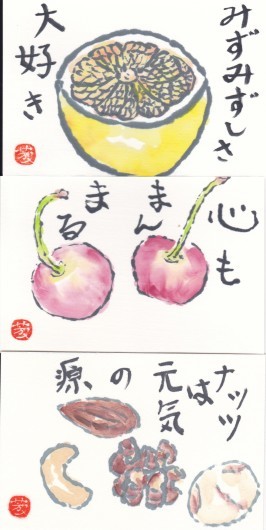 みずみずしさ
大好き
心も
まん
まる
ナッツ
は
元気
の
源